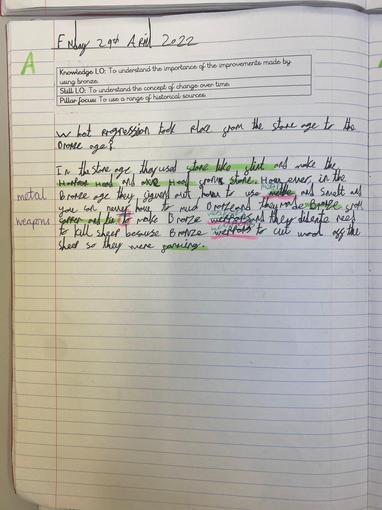 Friday 29th April 2022
A
Knowledge LO: To understand the importance of the improvements made by
using bronze.
Skill LO: To understand the concept of change over time.
Pillar focus: To use a range of historical sources.
What progression took place from the stone age to the
Bronze age?
In the stone age they used stone like flint and make the
and stone. However, in the
metal
Bronze age they figured out how to use and smelt and
you can never have to much Bronze and they made Bronze
weapons
to make Bronze and they need
to kill sheep because Bronze to cut wool off the
sheep so they were